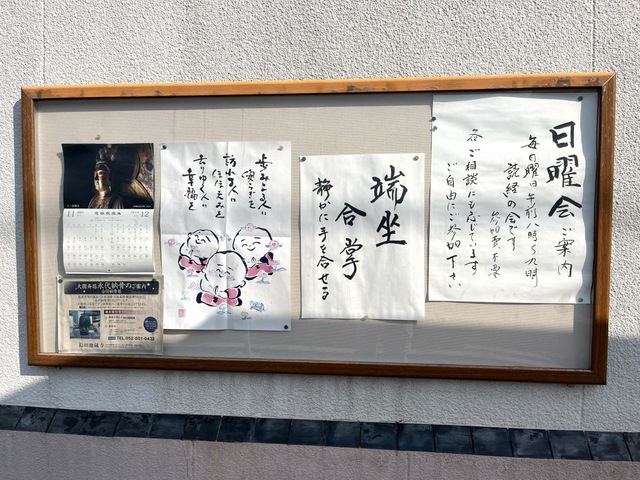 日曜会ご案内
毎日曜日午前八時〜九時
読経の会です
参加費不要
各ご相談にも応じています
ご自由にご参加下さい
端坐
合掌
静かに手を合せる
歩みよる人に
安らぎを
訪れる人に
ほほえみを
去りゆく人に
幸福を
11
12
永代納骨のご案内
TEL.052-801-0433